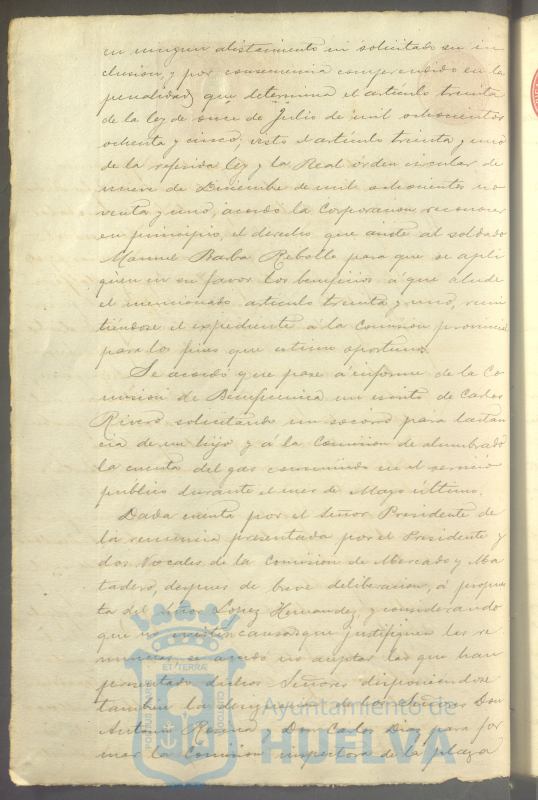 en ningun alistamiento ni solicitado su in
clusion, y por consecuencia comprendido en la
penalidad que determina el artículo treinta
de la ley de once de Julio de mil ochocientos
ochenta y cinco; visto el artículo treinta y uno
de la referida ley y la Real órden circular de
nueve de Diciembre de mil ochocientos no
venta y uno, acordó la Corporacion reconocer
en principio, el derecho que asiste al soldado
Manuel Barba Rebollo para que se apli
quen en su favor los beneficios á que alude
el mencionado artículo treinta y uno, remi
tiéndose el expediente á la Comision provincial
para los fines que estime oportunos.
Se acordó que pase á informe de la Co
mision de Beneficencia un escrito de Carlos
Rivero solicitando un socorro para lactan
cia de un hijo y á la Comision de alumbrado
la cuenta del gas consumido en el servicio
público durante el mes de Mayo último.
Dada cuenta por el Señor Presidente de
la renuncia presentada por el Presidente y
dos Vocales de la Comision de Mercado y Ma
tadero, despues de breve deliberacion, á propues
ta del Señor Lopez Hernandez, y considerando
que no existen causas que justifiquen las re
nuncias se acordó no aceptar las que han
presentado dichos Señores disponiéndose
tambien la designacion de los Señores Don
Antonio Don Carlos Diaz para for
mar la Comision inspectora de la plaza
ET TERRA
PORTUS MARIS
CUSTODIA
Ayuntamiento de
HUELVA